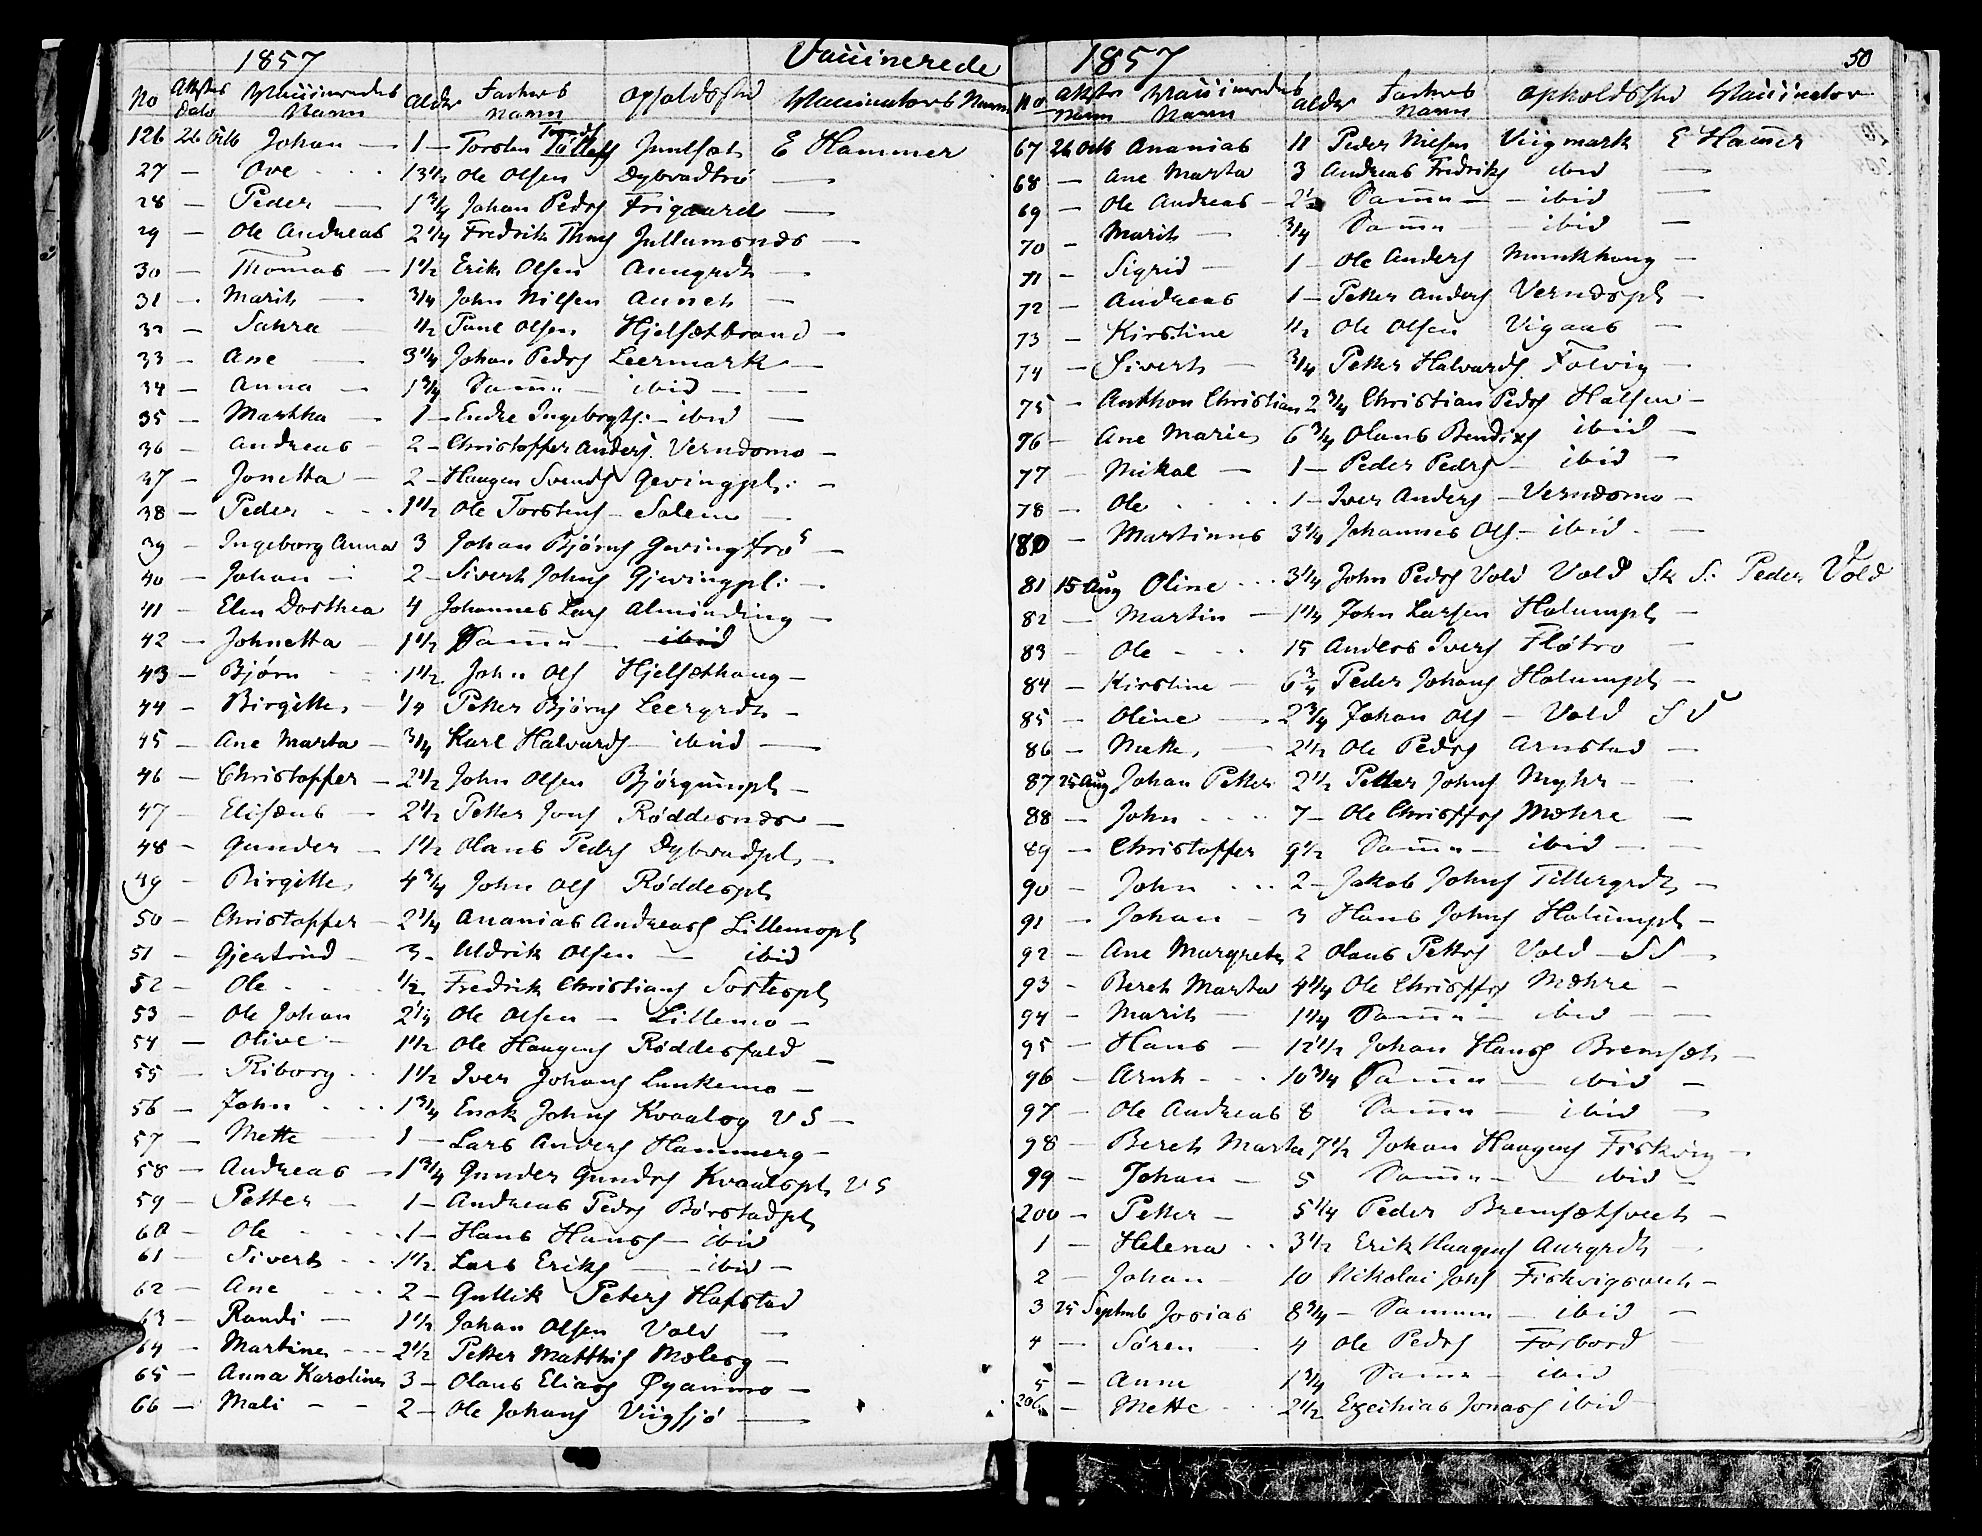 1857 Vaccinerede
No Attestes Dato Vaccineredes Navn Alder Faders Navn Opholdssted Vaccinators Navn
126 26 Octb Johan — 1 — Torsten E Hammer
27 — Ove 13 1/2 Ole Olsen Dybvadtrø —
28 — Peder — 1 3/4 Johan Peds Frigaard —
29 — Ole Andreas 2 1/4 Fredrik Jullumsnds —
30 — Thomas — 1 1/2 Erik Olsen Aungrdt —
31 — Marit — 3/4 John Nilsen Aunet —
32 — Sahra — 1/2 Paul Olsen Hjelsæthrand —
33 — Ane — 3 1/4 Johan Peds Leermark —
34 — Anna — 1 3/4 Samme — ibid —
35 — Martha — 1 — Endre Ingebrgts: — ibid —
36 — Andreas — 2 — Christoffer Anders. Verndsmo —
37 — Jonetta — 2 — Haagen Svends Gevingpl: —
38 — Peder 1 1/2 Ole Torstens — Salem —
39 — Ingeborg Anna 3 Johan Bjørns Gevingtrø —
40 — Johan — 2 — Sivert Johns Gjevingpl: —
41 — Elen Dorthea 4 Johannes Lars Alminding —
42 — Johnetta — 1 1/2 Samme — ibid
43 — Bjørn 1 1/2 John Ols Hjelsæthaug —
44 — Birgitte, — 1/4 Petter Bjørns Leergrdt —
45 — Ane Marta — 3/4 Karl Halvards — ibid —
46 — Christoffer — 2 1/2 John Olsen Bjørgumpl —
47 — Elisæus — 2 1/2 Petter Jons Røddesnds —
48 — Gunder — 1 1/2 Olaus Peds Dybvadpl, —
49 — Birgitte, 4 3/4 John Ols Røddespl
50 — Christoffer — 2 1/4 Ananias Andreass Lillemopl
51 — Gjertrud — 3 — Uldrik Olsen — ibid
52 — Ole 1/2 Fredrik Christians Sostespl
53 — Ole Johan 2 1/4 Ole Olsen — Lillemo —
54 — Olive — 1 1/2 Ole Haagens Røddesfald —
55 — Riborg 1 1/2 Iver Johans Lunkemo —
56 — John 1 3/4 Enok Johns Kvaalsg V S —
57 — Mette — 1 — Lars Anders Hammerg —
58 — Andreas — 1 3/4 Gunder Gunds Kvaalspl V S
59 — Petter — 1 — Andreas Peds Børstadpl
60 — Ole 1 — Hans Hanss — ibid
61 — Sivert 1 1/2 Lars Eriks — ibid —
62 — Ane 2 — Gullik Peters Hafstad
63 — Randi — 1 1/2 Johan Olsen Vold —
64 — Martine, 2 1/2 Petter Matthis Mælesg —
65 — Anna Karoline, 3 — Olaus Eliass Øyanmo —
66 — Mali — — 2 — Ole Johans Viigsjø —
1857 50
No Attstes Vaccineredes Navn Alder Faders Navn Opholdssted Vaccinator
67 26 Octb Ananias 11 Peder Nilsen Viigmark E Hammer
68 — Ane Marta 3 Andreas Fredriks ibid —
69 — Ole Andreas — Samme — ibid
70 — Marit — 3/4 Samme — ibid —
71 — Sigrid — 1 — Ole Anders Munkhaug —
72 — Andreas 1 — Petter Anders Verndspl —
73 — Kirstine 1/2 Ole Olsen Vigaas —
74 — Sivert — 3/4 Petter Halvards Folvig —
75 — Anthon Christian 2 3/4 Christian Peds Halsen —
76 — Ane Marie, 6 3/4 Olaus Bendixs ibid —
77 — Mikal — 1 — Peder Peders — ibid —
78 — Ole 1 — Iver Anders — Verndsmo —
180 — Martinus 3 1/4 Johannes Ols — ibid —
81 15 Aug Oline 3 1/4 John Peds Vold Vold Sk S: Peder Vold
82 — Martin — 1 1/4 John Larsen Halumpl —
83 — Ole — 15 Anders Ivers Fløtro —
84 — Kirstine — 6 3/4 Peder Johans Halumpl —
85 — Oline — 2 3/4 Johan Ols — Vold
86 — Mette, — 2 1/2 Ole Peds Arnstad —
87 25 Aug Johan Petter 2 1/2 Petter Johns Myhr —
88 — John 7 — Ole Christffs Mæhre —
89 — Christoffer 9 1/2 Samme — ibid —
90 — John 2 — Jakob Johns Tillergrdt —
91 — Johan — 3 Hans Johns Halumpl —
92 — Ane Margrete, 2 Olaus Petters Vold —
93 — Beret Marta 4 1/4 Ole Christffs Mæhre —
94 — Marit — 1 1/4 Samme — ibid —
95 — Hans — 12 1/2 Johan Hanss Bremsæt —
96 — Arnt 10 3/4 Samme — ibid —
97 — Ole Andreas 8 Samme — ibid —
98 — Beret Marta 7 1/2 Johan Haagens Fiskvig —
99 — Johan — 5 Samme — ibid —
200 — Petter — 5 1/4 Peder Bremsætsvet —
1 — Helena 3 1/2 Erik Haagens Aurgrdt —
2 — Johan — 10 Nikolai Johs —
3 25 Septmb Josias 8 3/4 — Samme — ibid —
4 — Søren — 4 Ole Peds Forbord —
5 — Anne 1 3/4 Samme — ibid
206 — Mette 2 1/2 Ezechias Jonass ibid —